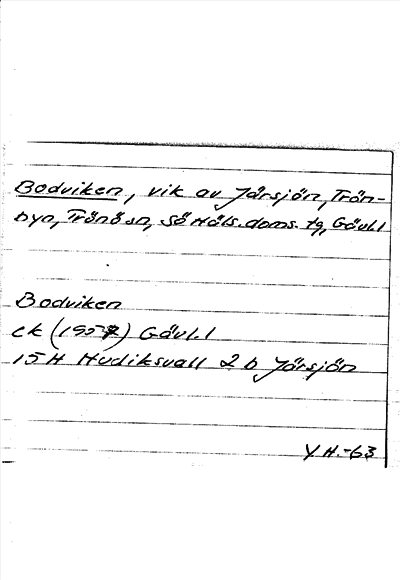 Bodviken, vik av Jårsjön, Trön-
byn, Trönö sn, Sö Häls. doms. tg, Gävl.l
Bodviken
ek (1957) Gävl.l
15H Hudiksvall 2 b Jårsjön
Y H.-63